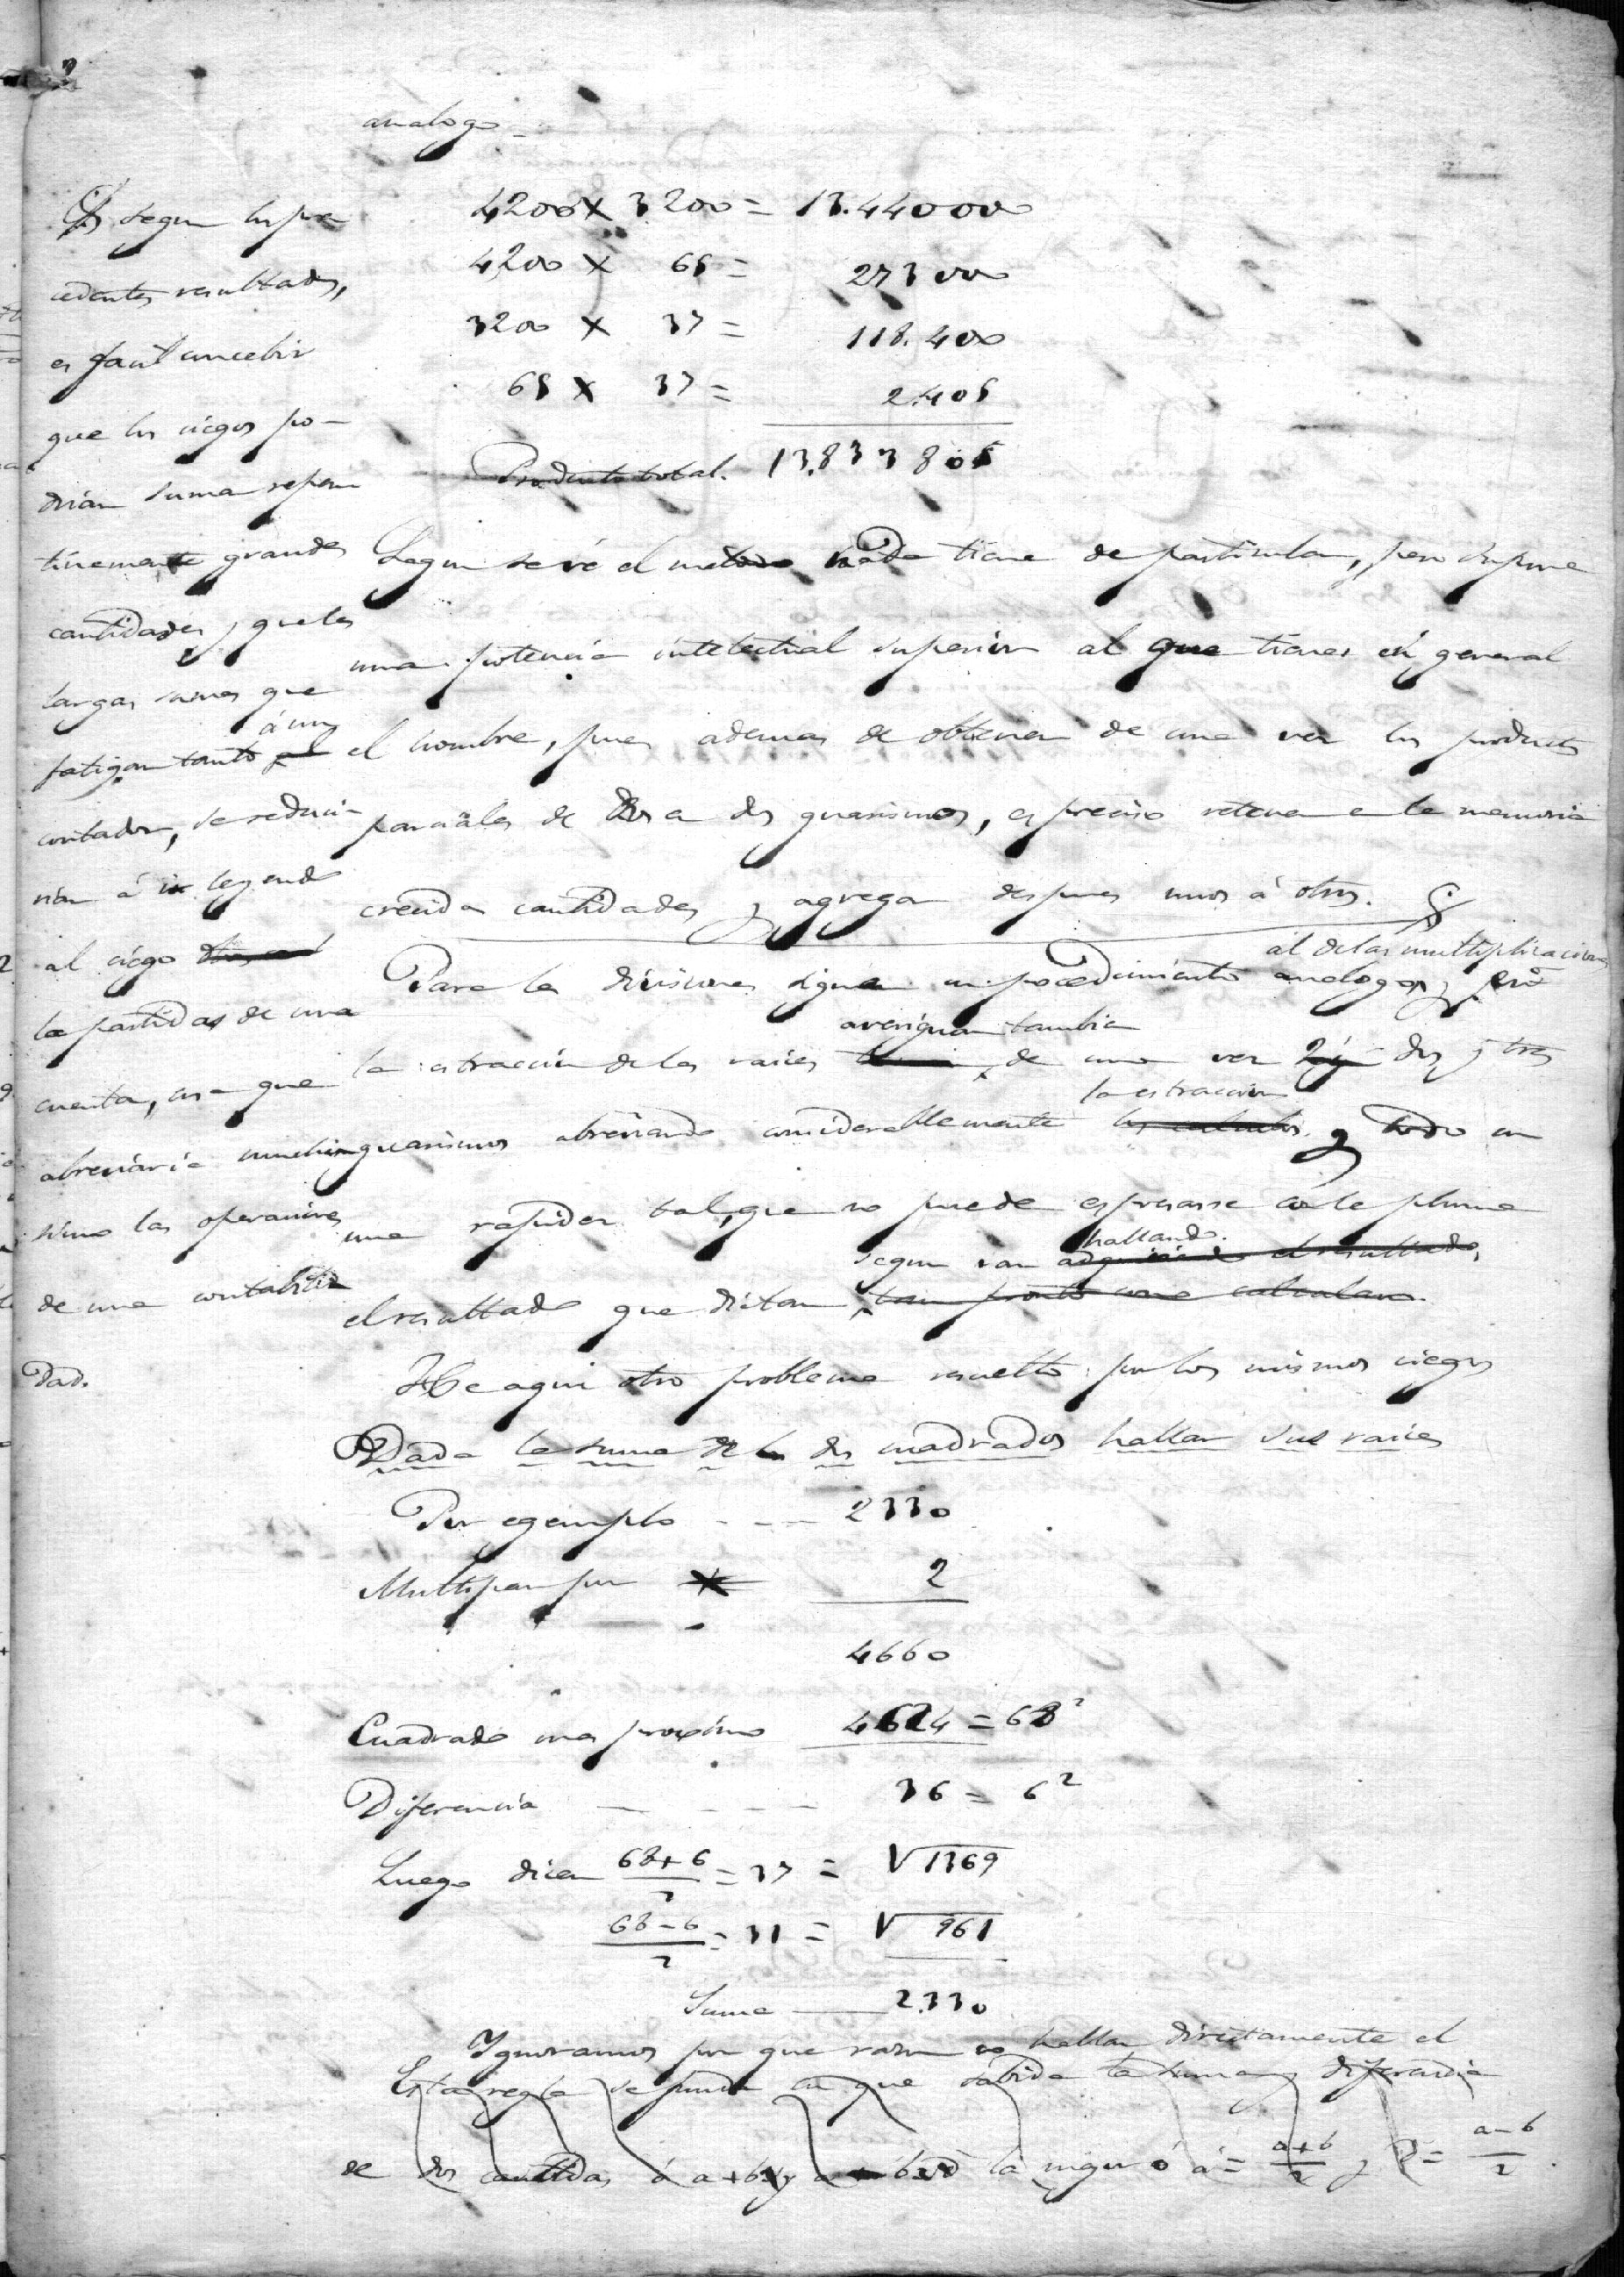 analogo_
4200 x 3200 = 13.440000
4200 x 65 = 273000
3200 x 37 = 118.400
65 x 37 = 2.405
Producto total. 13.833805
Segun se vé el metodo nada tiene de particular, pero supone
una potencia intelectual superior al que tienes en general
el hombre, pues ademas de obtener de una vez los productos
parciales de dos a dos guarismos, es preciso retener en la memoria
crecida cantidades y agregar despues unos á otros.
al de las multiplicaciones
Para la divisiones siguen un procedimiento analogo y para
averiguan tambien
la estraccion de las raices de una vez dos y tres
la estraccion
guarismos abreviando considerablemente los calculos y todo con
una rapidez tal, que no puede espresarse con la pluma
hallando.
segun van adquiriendo el resultado,
el resultado que dictan tan pronto como calculan.
He aqui otro problema resuelto por los mismos ciegos
Dada la suma de dos cuadrados hallar sus raices
Por egemplo - - - 2330
Multipan por 2
4660
Cuadrado mas proximo 4624 = 68²
Diferencia - - - - 36 = 6²
Luego dicen (68+6)/2 = 37 = √1369
(68-6)/2 = 31 = √961
Suma — 2.330
Ignoramos por que razon no hallan directamente el
Esta regla se funda en que sabida la suma y diferencia
de dos cantidas ó a+b y a b la = (a+b)/2 y = (a-b)/2.
segun los pre
cedentes resultados,
es facil concebir
que los ciegos po-
drian sumar repen
tinemente grandes
cantidades, y que las
largas sumas que
á un
fatigan tanto al
contador, se reduci-
rian á ir leyendo
al ciego
la partidas de una
cuenta, cosa que
abreviaria muchi
simo las operaciones
de una contabili
dad.